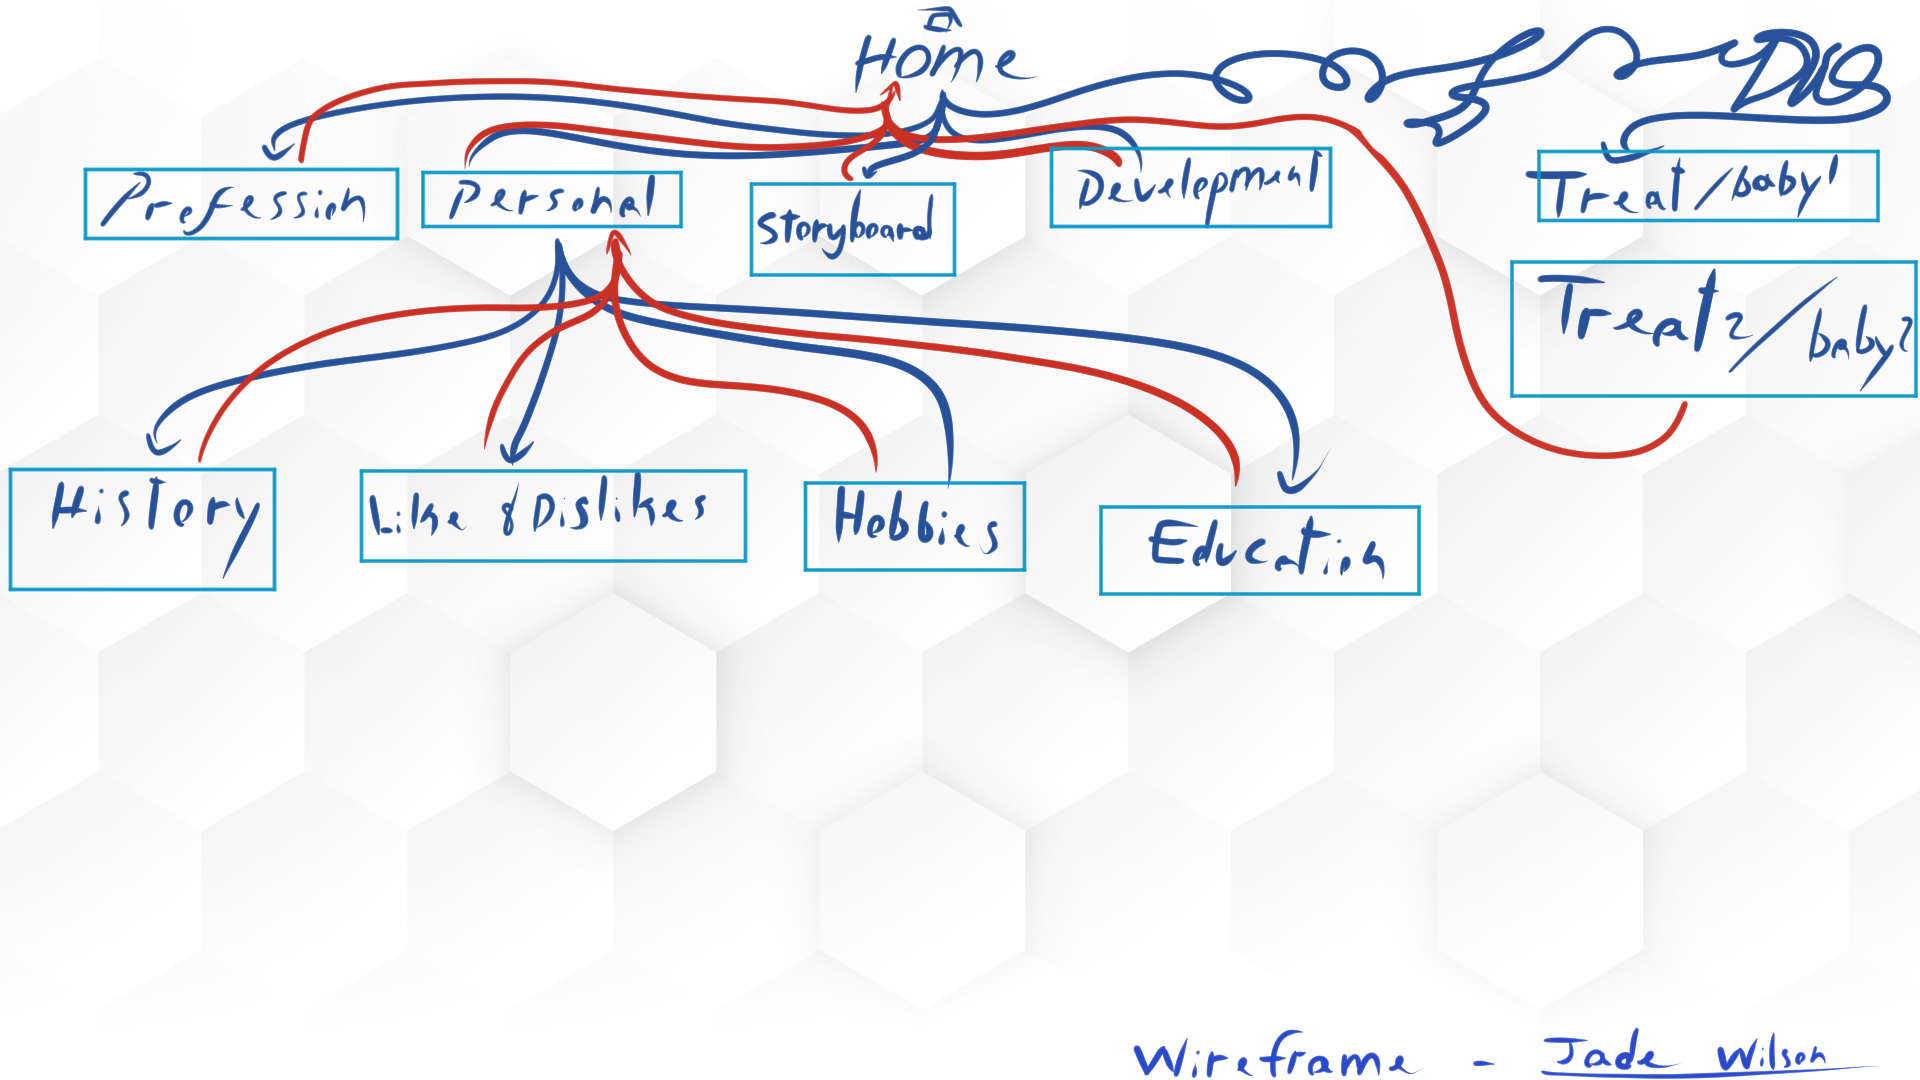 Home
Profession
Personal
Storyboard
Development
Treat/baby1
Treat2/baby2
History
Like & Dislikes
Hobbies
Education
Wireframe - Jade Wilson